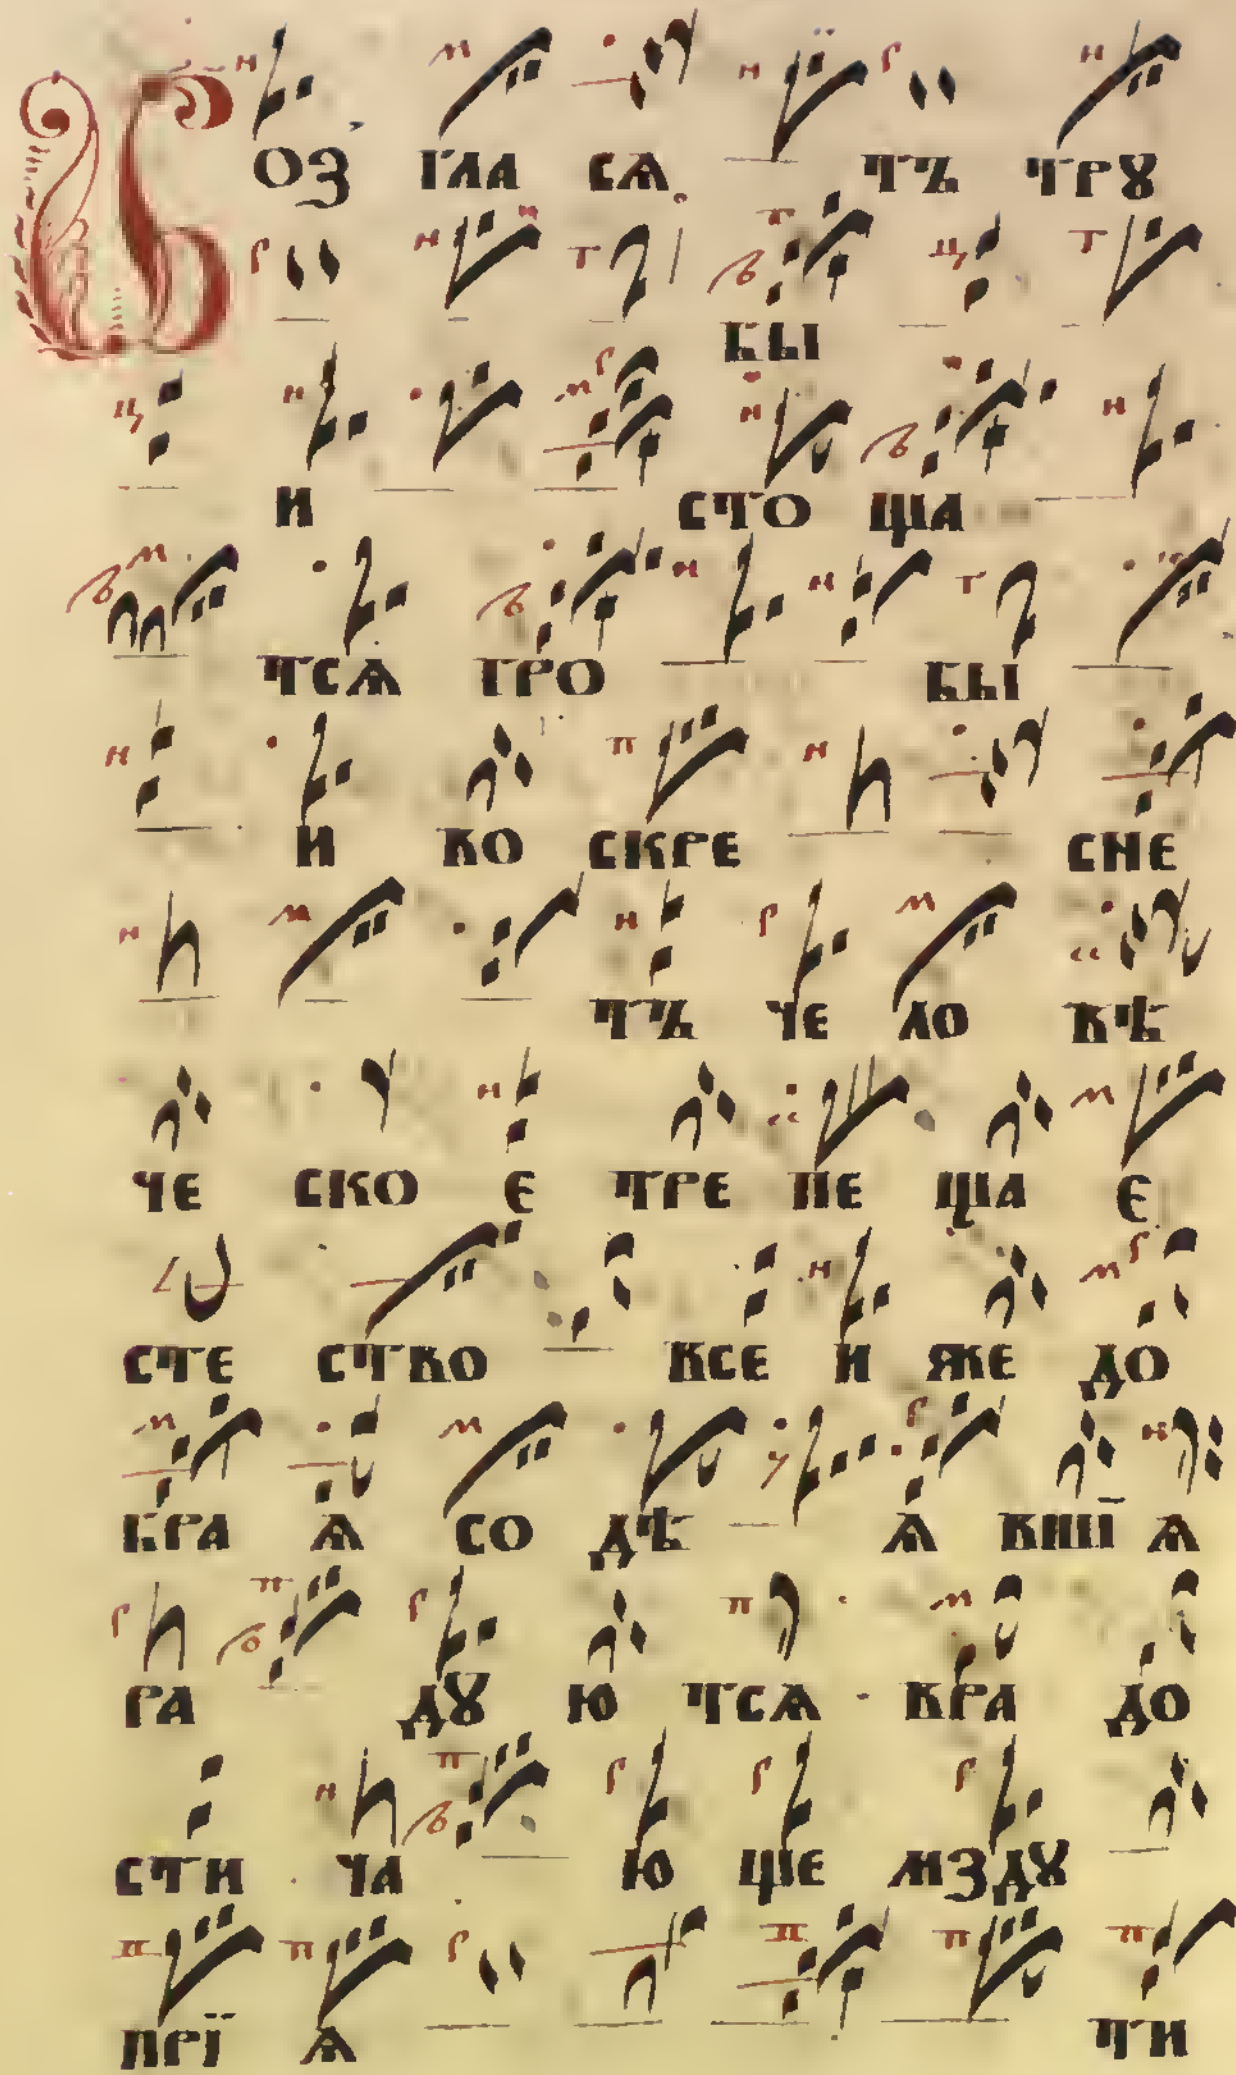 Воз гла сѧ тъ трꙋ
бы
и сто ща
тсѧ гро бы
и во скре сне
тъ че ло вѣ
че ско е тре пе ща е
сте ство все и яже до
бра ѧ со дѣ ѧ вшї ѧ
ра дꙋ ю тсѧ вра до
сти ча ю ще мздꙋ
прї ѧ ти